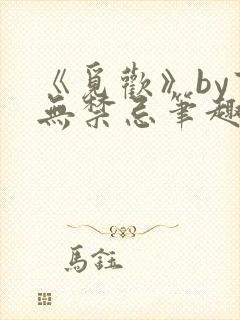 《覓歡》by
無禁忌筆趣
馬鈺